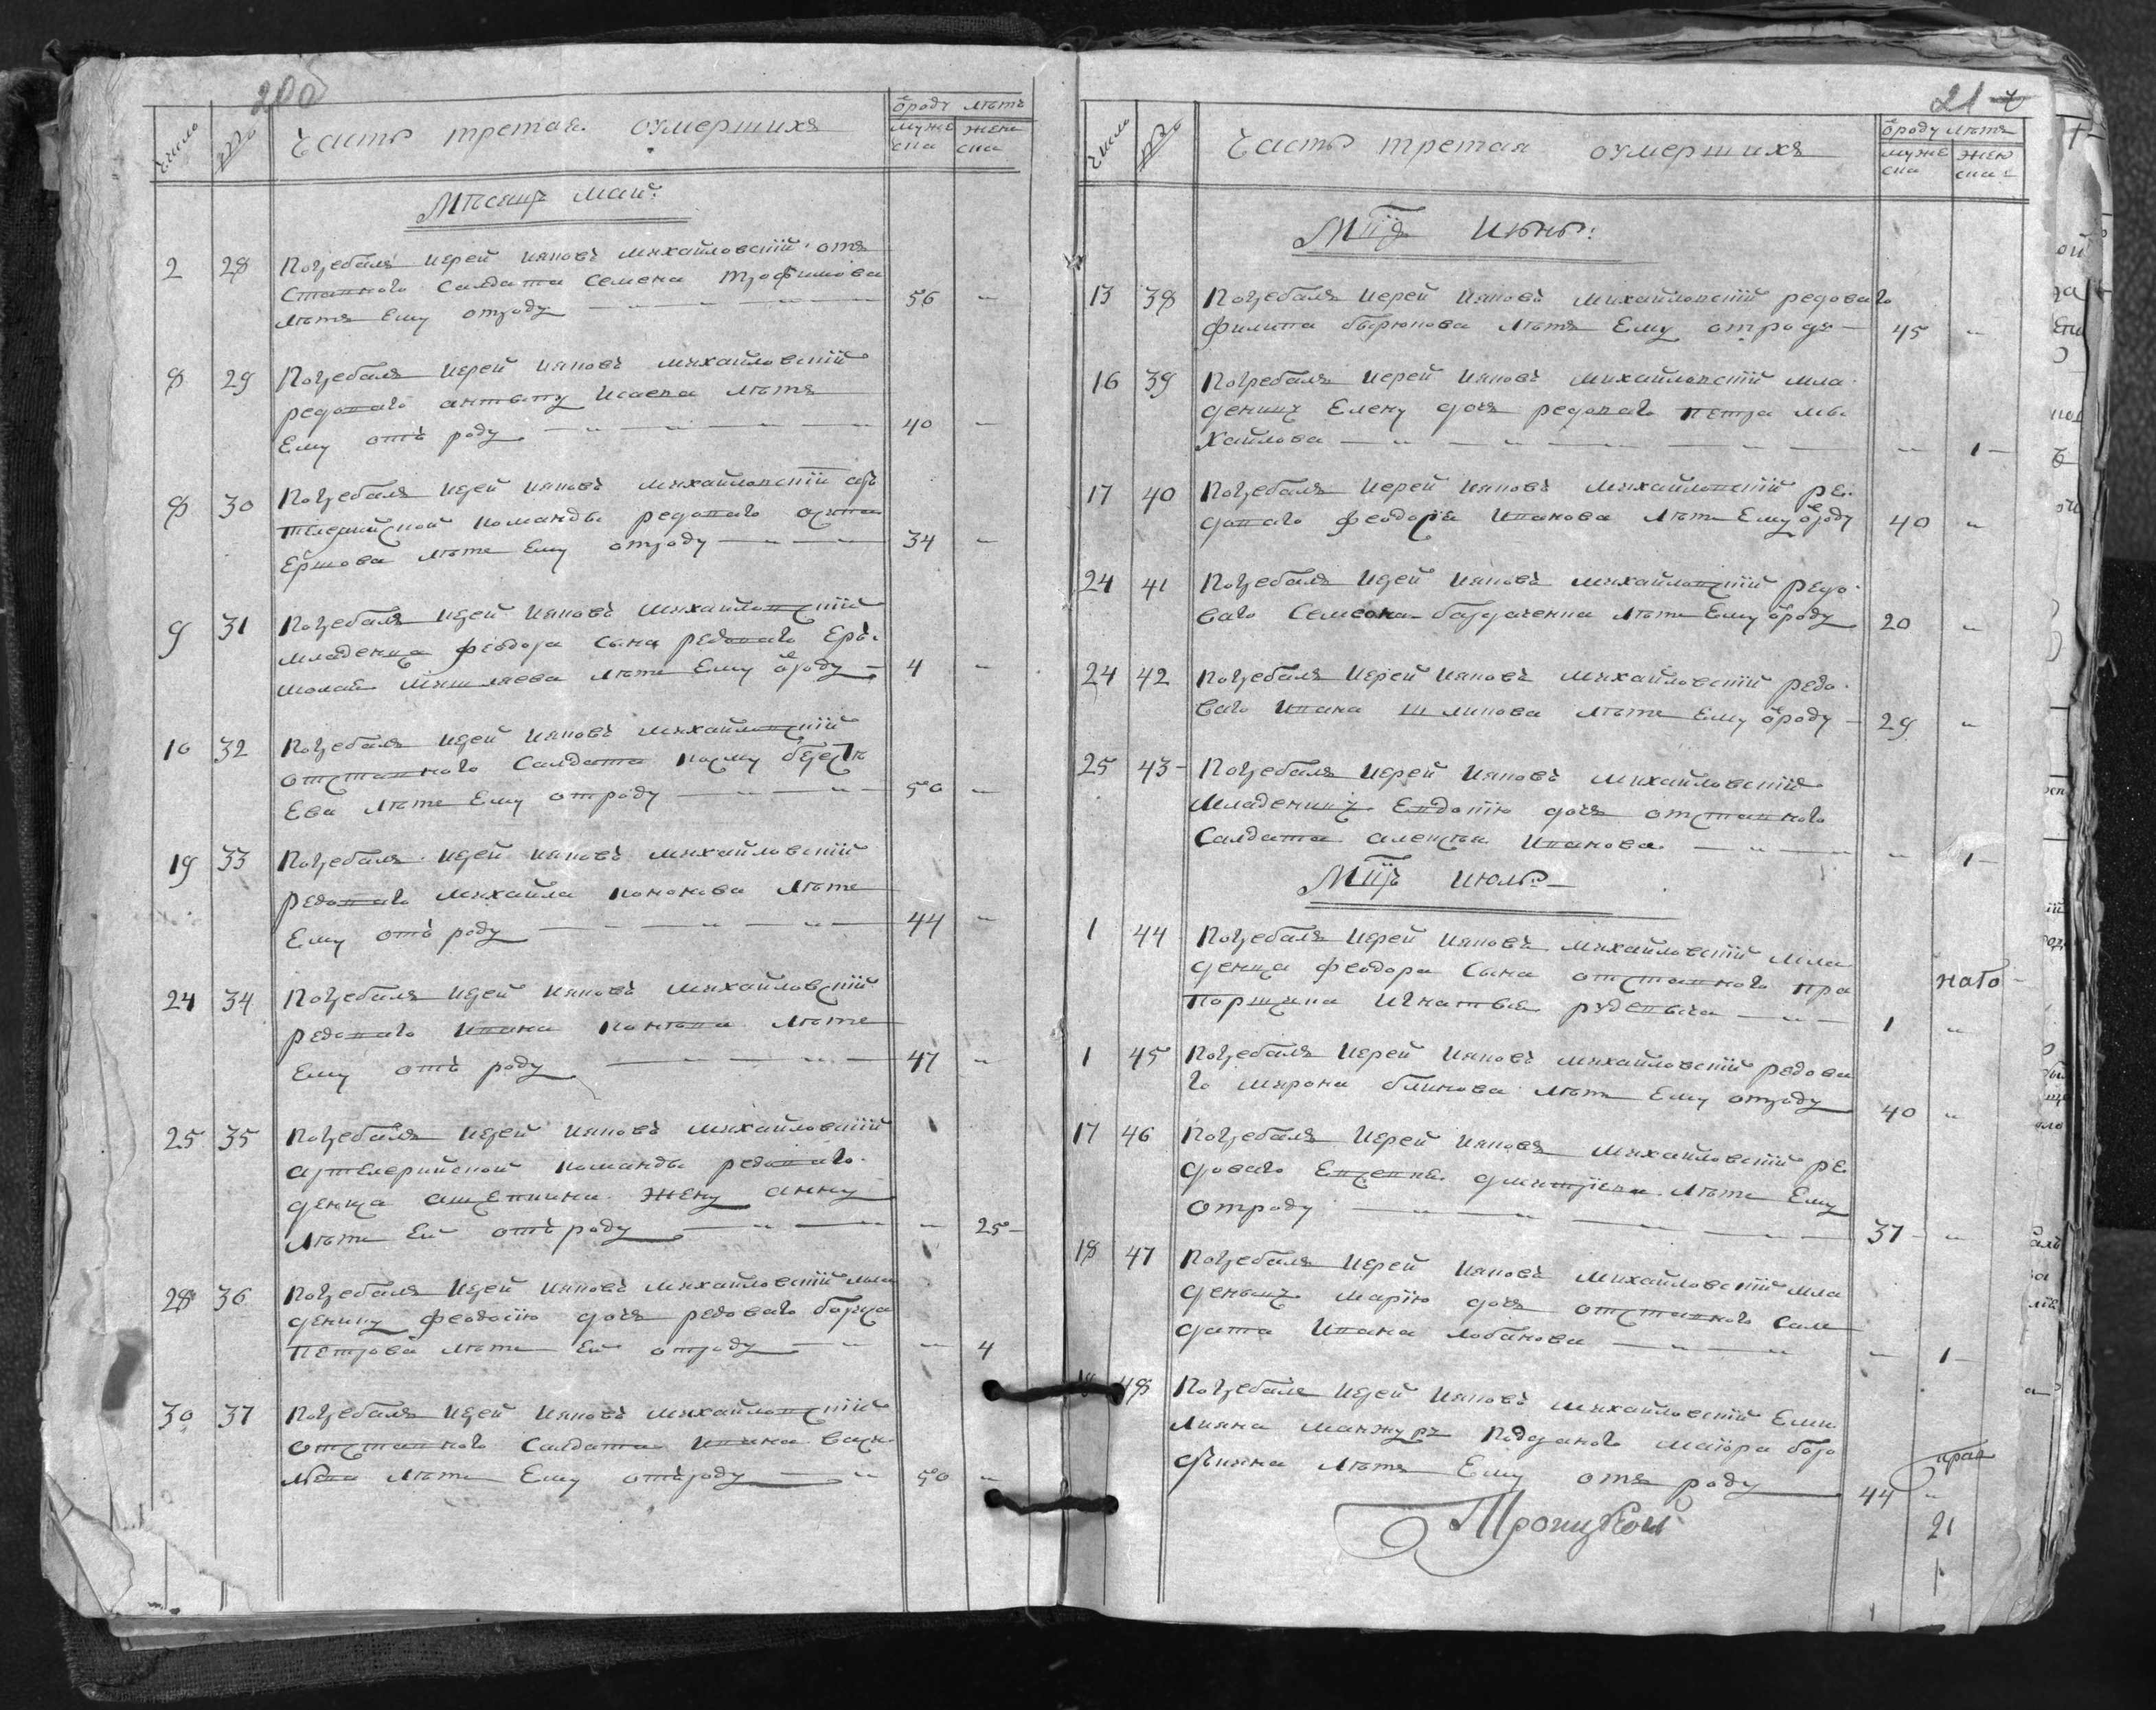 200
число
№
Часть третая. оумершихъ
ѿроду лѣтъ
муже ска
жен ска
Мѣсяцъ май:
2 28 Погребалъ иерей Ияковъ михайловскій от
ставнаго салдата Семена трофимова
лѣтъ Ему отроду 56
8 29 Погребалъ иерей Ияковъ михайловскій
редоваго антипу Исаева лѣтъ
Ему отъ роду 40
8 30 Погребалъ иерей Ияковъ михайловскій ар
тилерийской команды редоваго осипа
Ершова лѣтъ Ему отроду 34
9 31 Погребалъ иерей Ияковъ михайловскій
младенца феодора сына редоваго Ер
молая лѣтъ Ему ѿроду 4
10 32 Погребалъ иерей Ияковъ михайловскій
отставнаго Салдата козму
Ева лѣтъ Ему отроду 50
19 33 Погребалъ иерей Ияковъ михайловскій
редоваго михайла кононова лѣтъ
Ему отъ роду 44
24 34 Погребалъ иерей Ияковъ михайловскій
редоваго Ивана лѣтъ
Ему отъ роду 47
25 35 Погребалъ иерей Ияковъ михайловскій
артилерийской команды редоваго
жену анну
лѣтъ Ей отъ роду 25
28 36 Погребалъ иерей Ияковъ михайловскій мла
деницу феодосію дочь редоваго бориса
Петрова лѣтъ Ей отроду 4
30 37 Погребалъ иерей Ияковъ михайловскій
отставнаго салдата Ивана васи
льева лѣтъ Ему отъ роду 50
21
число
№
Часть третая оумершихъ
ѿроду лѣтъ
муже ска
жен ска
Мцъ Июнь:
13 38 Погребалъ иерей Ияковъ михайловскій редоваго
филипа бирюкова лѣтъ Ему отроду 45
16 39 Погребалъ иерей Ияковъ михайловскій мла
деницу Елену дочь редоваго Петра ми
хайлова 1
17 40 Погребалъ иерей Ияковъ михайловскій ре
доваго феодора Иванова лѣтъ Ему ѿроду 40
24 41 Погребалъ иерей Ияковъ михайловскій редо
ваго Семеона лѣтъ Ему ѿроду 20
24 42 Погребалъ иерей Ияковъ михайловскій редо
ваго Ивана шлыкова лѣтъ Ему ѿроду 29
25 43 Погребалъ иерей Ияковъ михайловскій
младеницу Евдокію дочь отставнаго
салдата алексея Иванова 1
Мцъ июль
1 44 Погребалъ иерей Ияковъ михайловскій мла
денца феодора сына отставнаго пра
порщика Игнатья 1
1 45 Погребалъ иерей Ияковъ михайловскій редова
го мирона блинова лѣтъ Ему отроду 40
17 46 Погребалъ иерей Ияковъ михайловскій ре
доваго Евсевия дмитріева лѣтъ Ему
отроду 37
18 47 Погребалъ иерей Ияковъ михайловскій мла
деницу марію дочь отставнаго сал
дата Ивана лобанова 1
18 48 Погребалъ иерей Ияковъ михайловскій Еми
лияна манжура маіора
лѣтъ Ему отъ роду 44
Троицкой
21